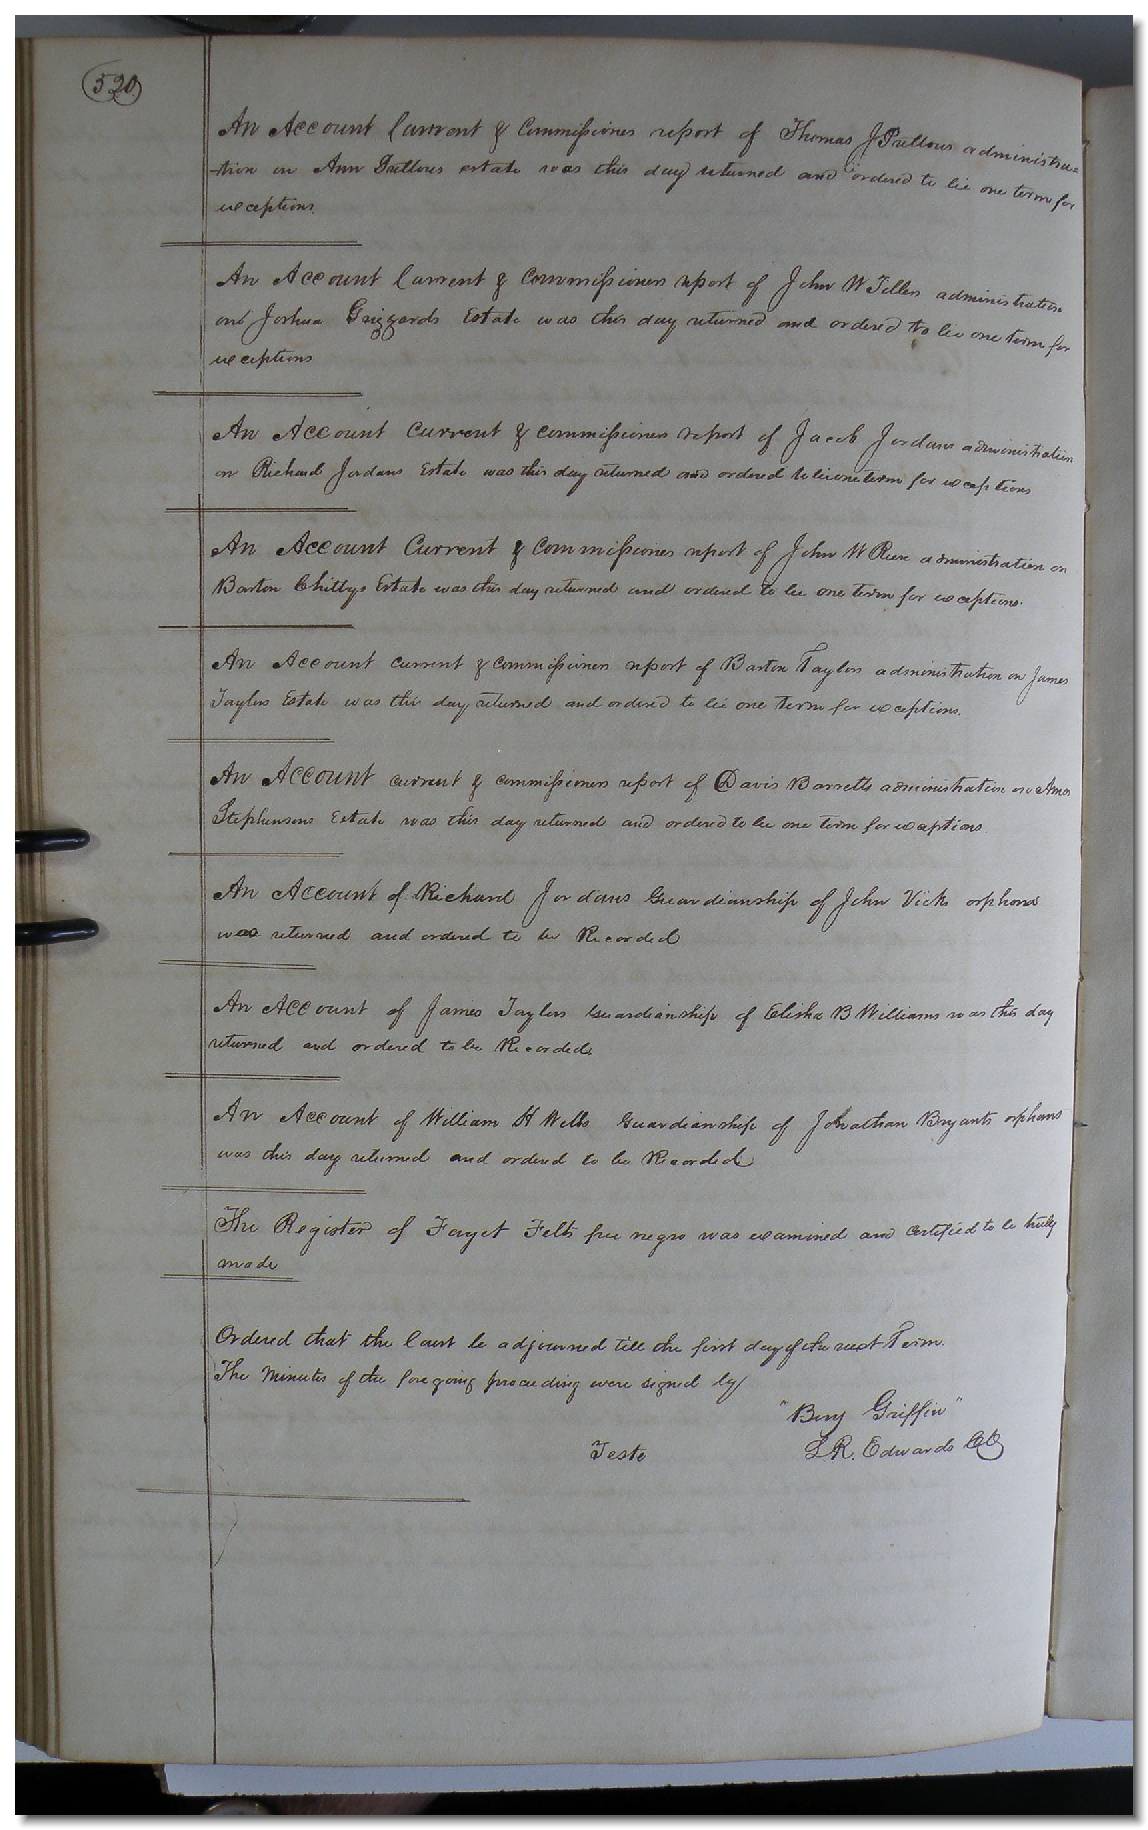 520
An Account Current & Commissioners report of Thomas J Pretlows administra
-tion on Ann Pretlows estate was this day returned and ordered to lie one term for
exceptions.
An Account Current & Commissioners report of John W Tillers administration
on Joshua Grizzards Estate was this day returned and ordered to lie one term for
exceptions
An Account Current & Commissioners report of Jacob Jordans administration
on Richard Jordans Estate was this day returned and ordered to lie one term for exceptions
An Account Current & Commissioners report of John W administration on
Barton Estate was this day returned and ordered to lie one term for exceptions.
An Account current & Commissioners report of Barton Taylors administration on James
Taylors Estate was this day returned and ordered to lie one term for exceptions.
An Account current & commissioners report of Davis Barretts administration on Amos
Stephensons Estate was this day returned and ordered to lie one term for exceptions
An Account of Richard Jordans Guardianship of John Vicks orphans
was returned and ordered to be Recorded
An Account of James Taylors Guardianship of Elisha B Williams was this day
returned and ordered to be Recorded
An Account of William H Wells Guardianship of Johnathan Bryants orphans
was this day returned and ordered to be Recorded
The Register of Felts free negro was examined and certified to be truly
made
Ordered that the Court be adjourned till the first day of the next Term.
The Minutes of the foregoing proceeding were signed by
"Benj Griffin"
Teste L R. Edwards